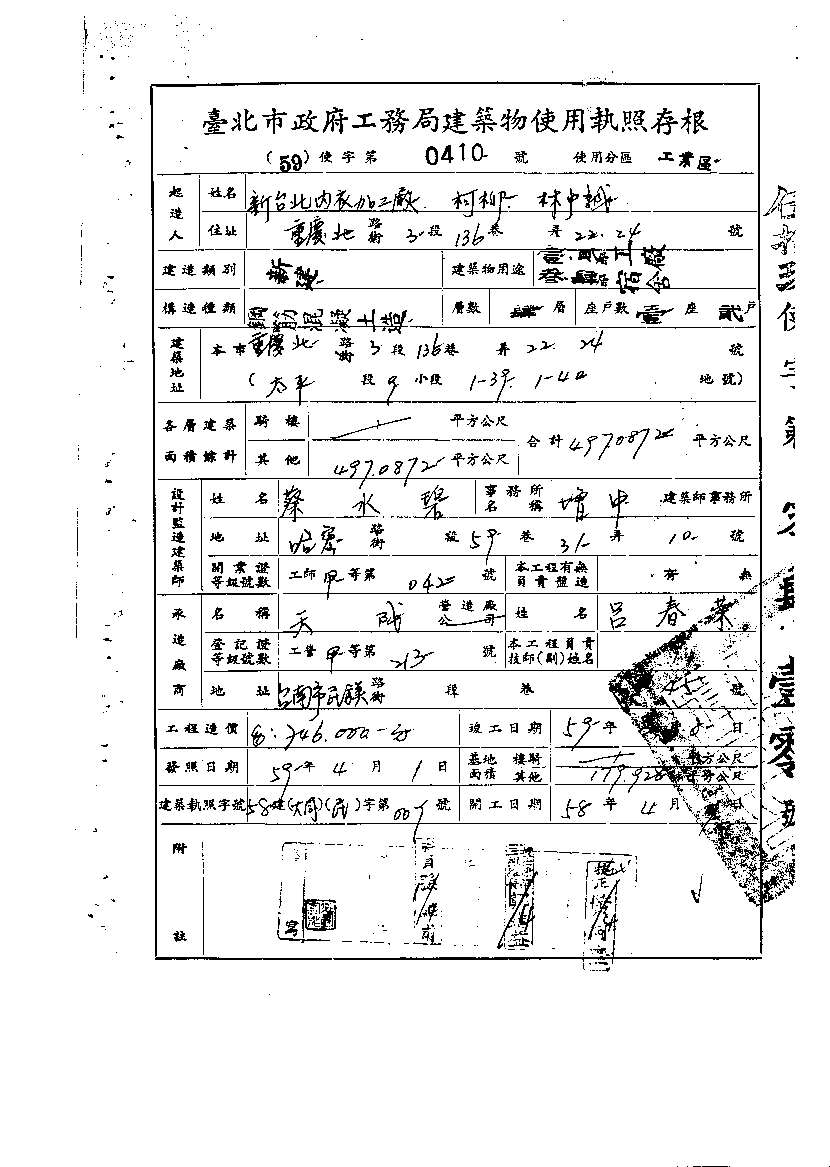 臺北市政府工務局建築物使用執照存根
(59) 使字第 0410 號 使用分區 工業區
起造人 姓名 新台北內衣加工廠 柯柳 林中誠
住址 重慶北 路街 3 段 136 巷 弄 22.24 號
建造類別 新建 建築物用途 工廠 宿舍
構造種類 鋼筋混凝土造 層數 肆 層 座戶數 壹 座 貳 戶
建築地址 本市 重慶北 路街 3 段 136 巷 弄 22. 24 號
(太平 段 9 小段 1-39. 1-40 地號)
各層建築面積總計 騎樓 平方公尺 合計 497.0872 平方公尺
其他 497.0872 平方公尺
設計監造建築師 姓名 蔡水碧 事務所名稱 增申 建築師事務所
地址 哈密 路街 段 59 巷 31 弄 10 號
開業證等級號數 工師 甲 等第 042 號 本工程有無負責監造 有 無
承造廠商 名稱 天成 營造廠公司 姓名 呂春榮
登記證等級號數 工營 甲 等第 213 號 本工程負責技師(副)姓名
地址 台南市民族 路街 段 巷 45 號
工程造價 竣工日期 59 年 8 日
發照日期 59 年 4 月 1 日 基地面積 樓騎 平方公尺
其他 179.928 平方公尺
建築執照字號 58 建(大同)(民)字第 號 開工日期 58 年 4 月 日
附註